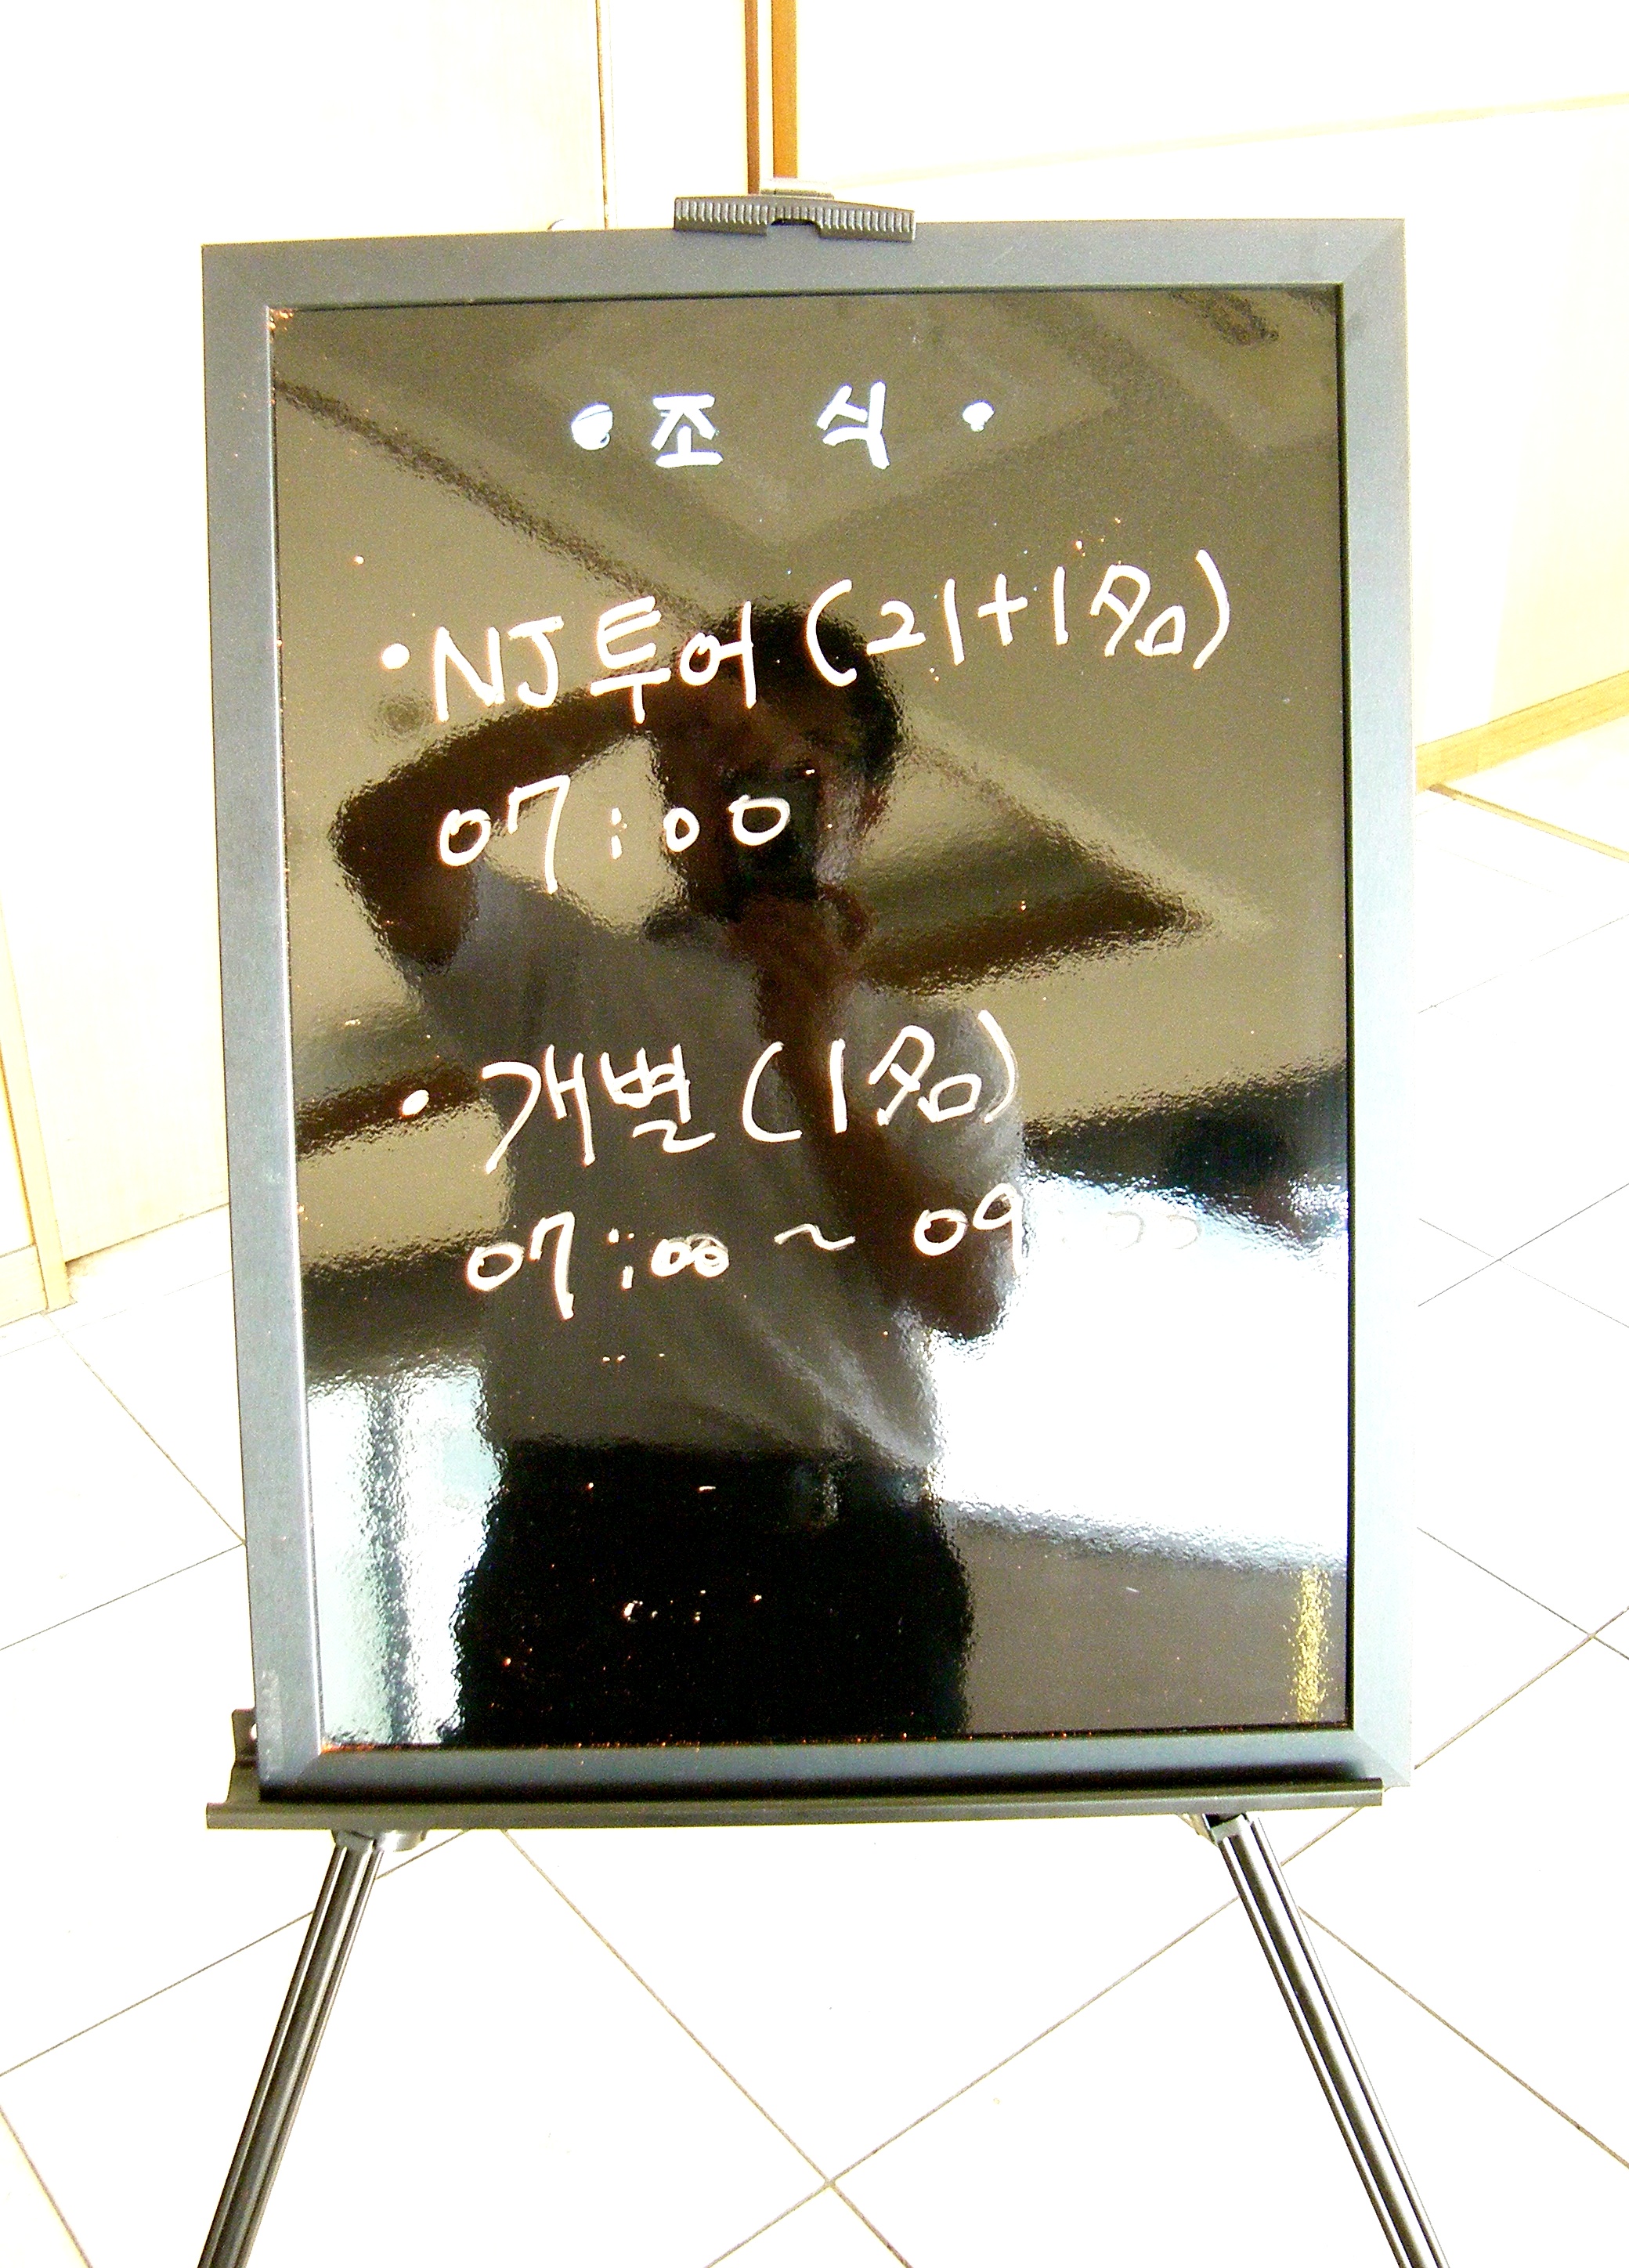 • 조 식 •
• NJ투어 (21+1名)
07:00
• 개별 (1名)
07:00 ~ 09:00